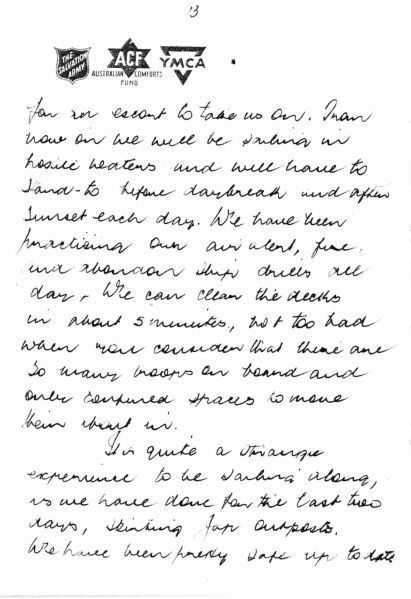 13
THE SALVATION ARMY
ACF
AUSTRALIAN COMFORTS FUND
YMCA
for an escort to take us on. From
now on we will be sailing in
hostile waters and will have to
stand-to before daybreak and after
sunset each day. We have been
practising our air alert, fire
and abandon ship drills all
day. We can clear the decks
in about 5 minutes, not too bad
when you consider that there are
so many troops on board and
only confined spaces to move
them about in.
It is quite a strange
experience to be sailing along,
as we have done for the last two
days, skirting Jap outposts.
We have been pretty safe up to date